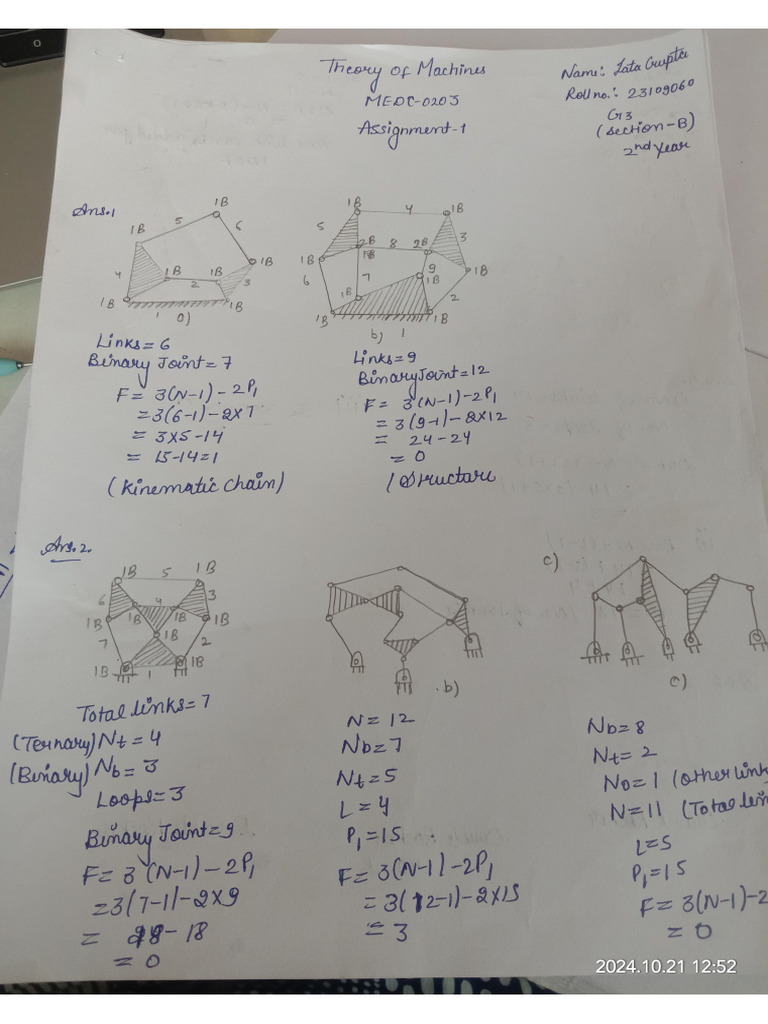 Theory of Machines
MEDC-0203
Assignment-1
Name: Lata Gupta
Roll no.: 23109060
G3
(Section-B)
2nd Year
Ans.1
1B 5 1B 6 1B 4 1B 2 1B 3 1B 1B 1
a)
1B 4 1B 5 2B 8 2B 3 1B 6 7 9 1B 1B 1B 2 1B 1B
b) 1
Links = 6
Binary Joint = 7
F = 3(N-1) - 2P1
= 3(6-1) - 2×7
= 3×5-14
= 15-14=1
(Kinematic chain)
Links = 9
Binary Joint = 12
F = 3(N-1)-2P1
= 3(9-1)-2×12
= 24-24
= 0
(Structure
Ans.2.
1B 5 1B
6 4 3
1B 1B 1B 1B
1B
7 2
1B 1 1B
b)
c)
c)
Total links = 7
(Ternary) Nt = 4
(Binary) Nb = 3
Loops = 3
Binary Joint = 9
F = 3(N-1) - 2P1
= 3(7-1) - 2×9
= 18 - 18
= 0
N = 12
Nb = 7
Nt = 5
L = 4
P1 = 15
F = 3(N-1)-2P1
= 3(12-1)-2×15
= 3
Nb = 8
Nt = 2
No = 1 (Other link
N = 11 (Total lin
L = 5
P1 = 15
F = 3(N-1)-2
= 0
2024.10.21 12:52